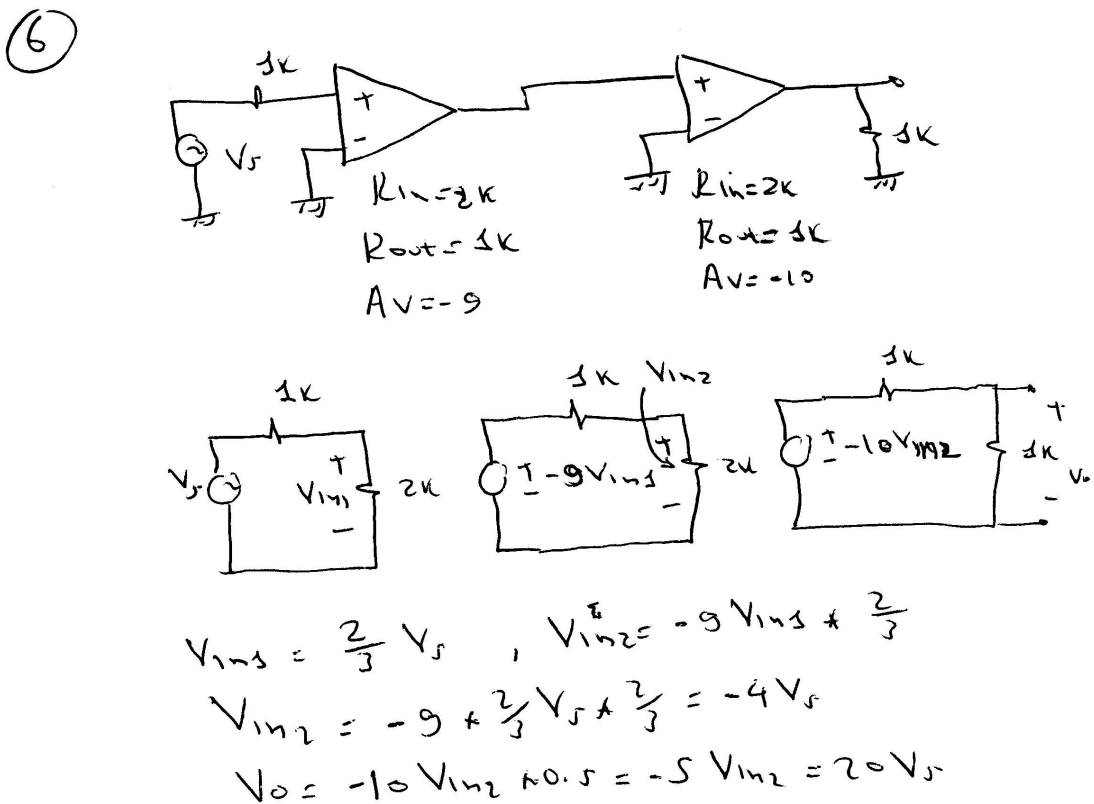 6
1K
+
-
Vs
Rin=2K
Rout=1K
Av=-9
+
-
1K
Rin=2K
Rout=1K
Av=-10
1K
Vs
+
Vin1
-
2K
1K
Vin2
+
- -9Vin1
+
-
2K
1K
+
- -10Vin2
1K
+
Vo
-
Vin1 = 2/3 Vs , Vin2= -9 Vin1 * 2/3
Vin2 = -9 * 2/3 Vs * 2/3 = -4 Vs
Vo= -10 Vin2 *0.5 = -5 Vin2 = 20 Vs